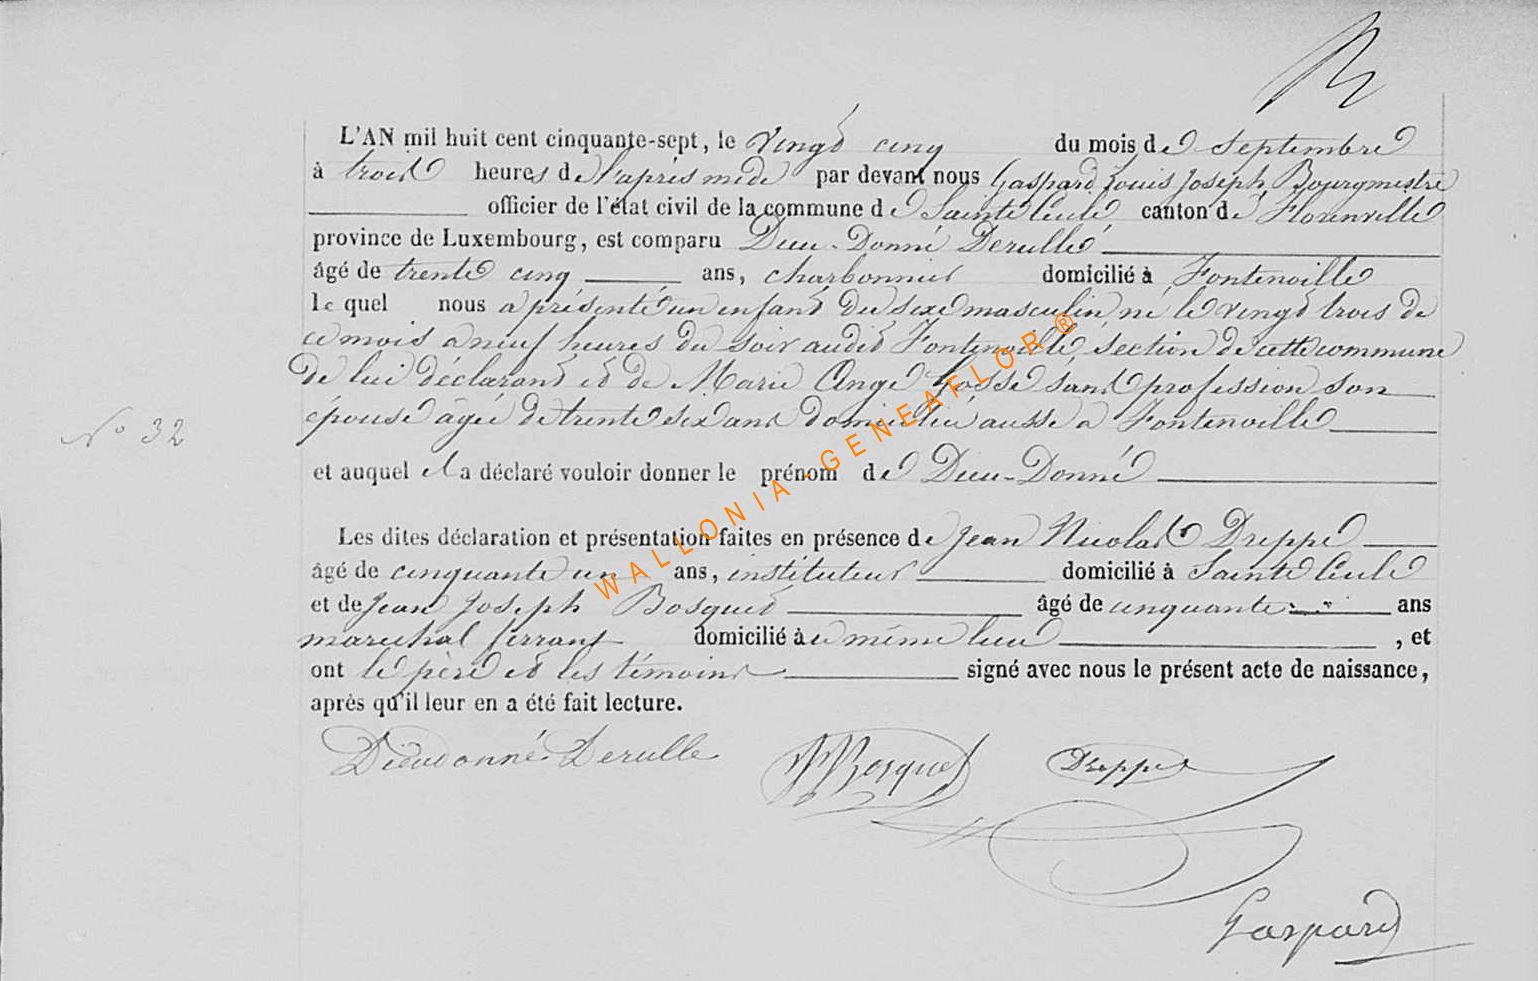 L'AN mil huit cent cinquante-sept, le vingt cinq du mois de Septembre
à trois heures de l'après midi par devant nous Gaspard Louis Joseph, Bourgmestre
officier de l'état civil de la commune de Sainte Cécile canton de Florenville
province de Luxembourg, est comparu Dieu-Donné Derulle
âgé de trente cinq ans, charbonnier domicilié à Fontenoille
lequel nous a présenté un enfant du sexe masculin né le vingt trois de
ce mois à neuf heures du soir audit Fontenoille, section de cette commune
de lui déclarant et de Marie Ange Gosse sans profession son
épouse âgée de trente six ans domiciliée aussi à Fontenoille
N° 32
et auquel il a déclaré vouloir donner le prénom de Dieu-Donné
Les dites déclaration et présentation faites en présence de Jean Nicolas Dreppe
âgé de cinquante un ans, instituteur domicilié à Sainte Cécile
et de Jean Joseph Bosquet âgé de cinquante ans
maréchal ferrant domicilié à ce même lieu , et
ont le père et les témoins signé avec nous le présent acte de naissance,
après qu'il leur en a été fait lecture.
Dieudonné Derulle JJBosquet Dreppe
Gaspard
WALLONIA-GENEAFLOR®